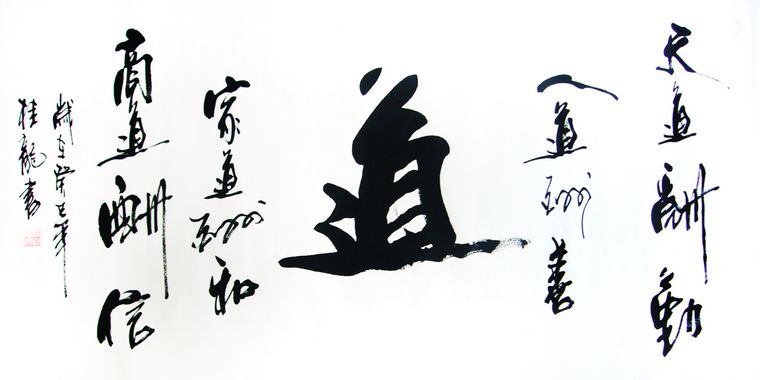 天道酬勤
人道酬善
道
家道酬和
商道酬信
歲在癸巳年
桂龍書